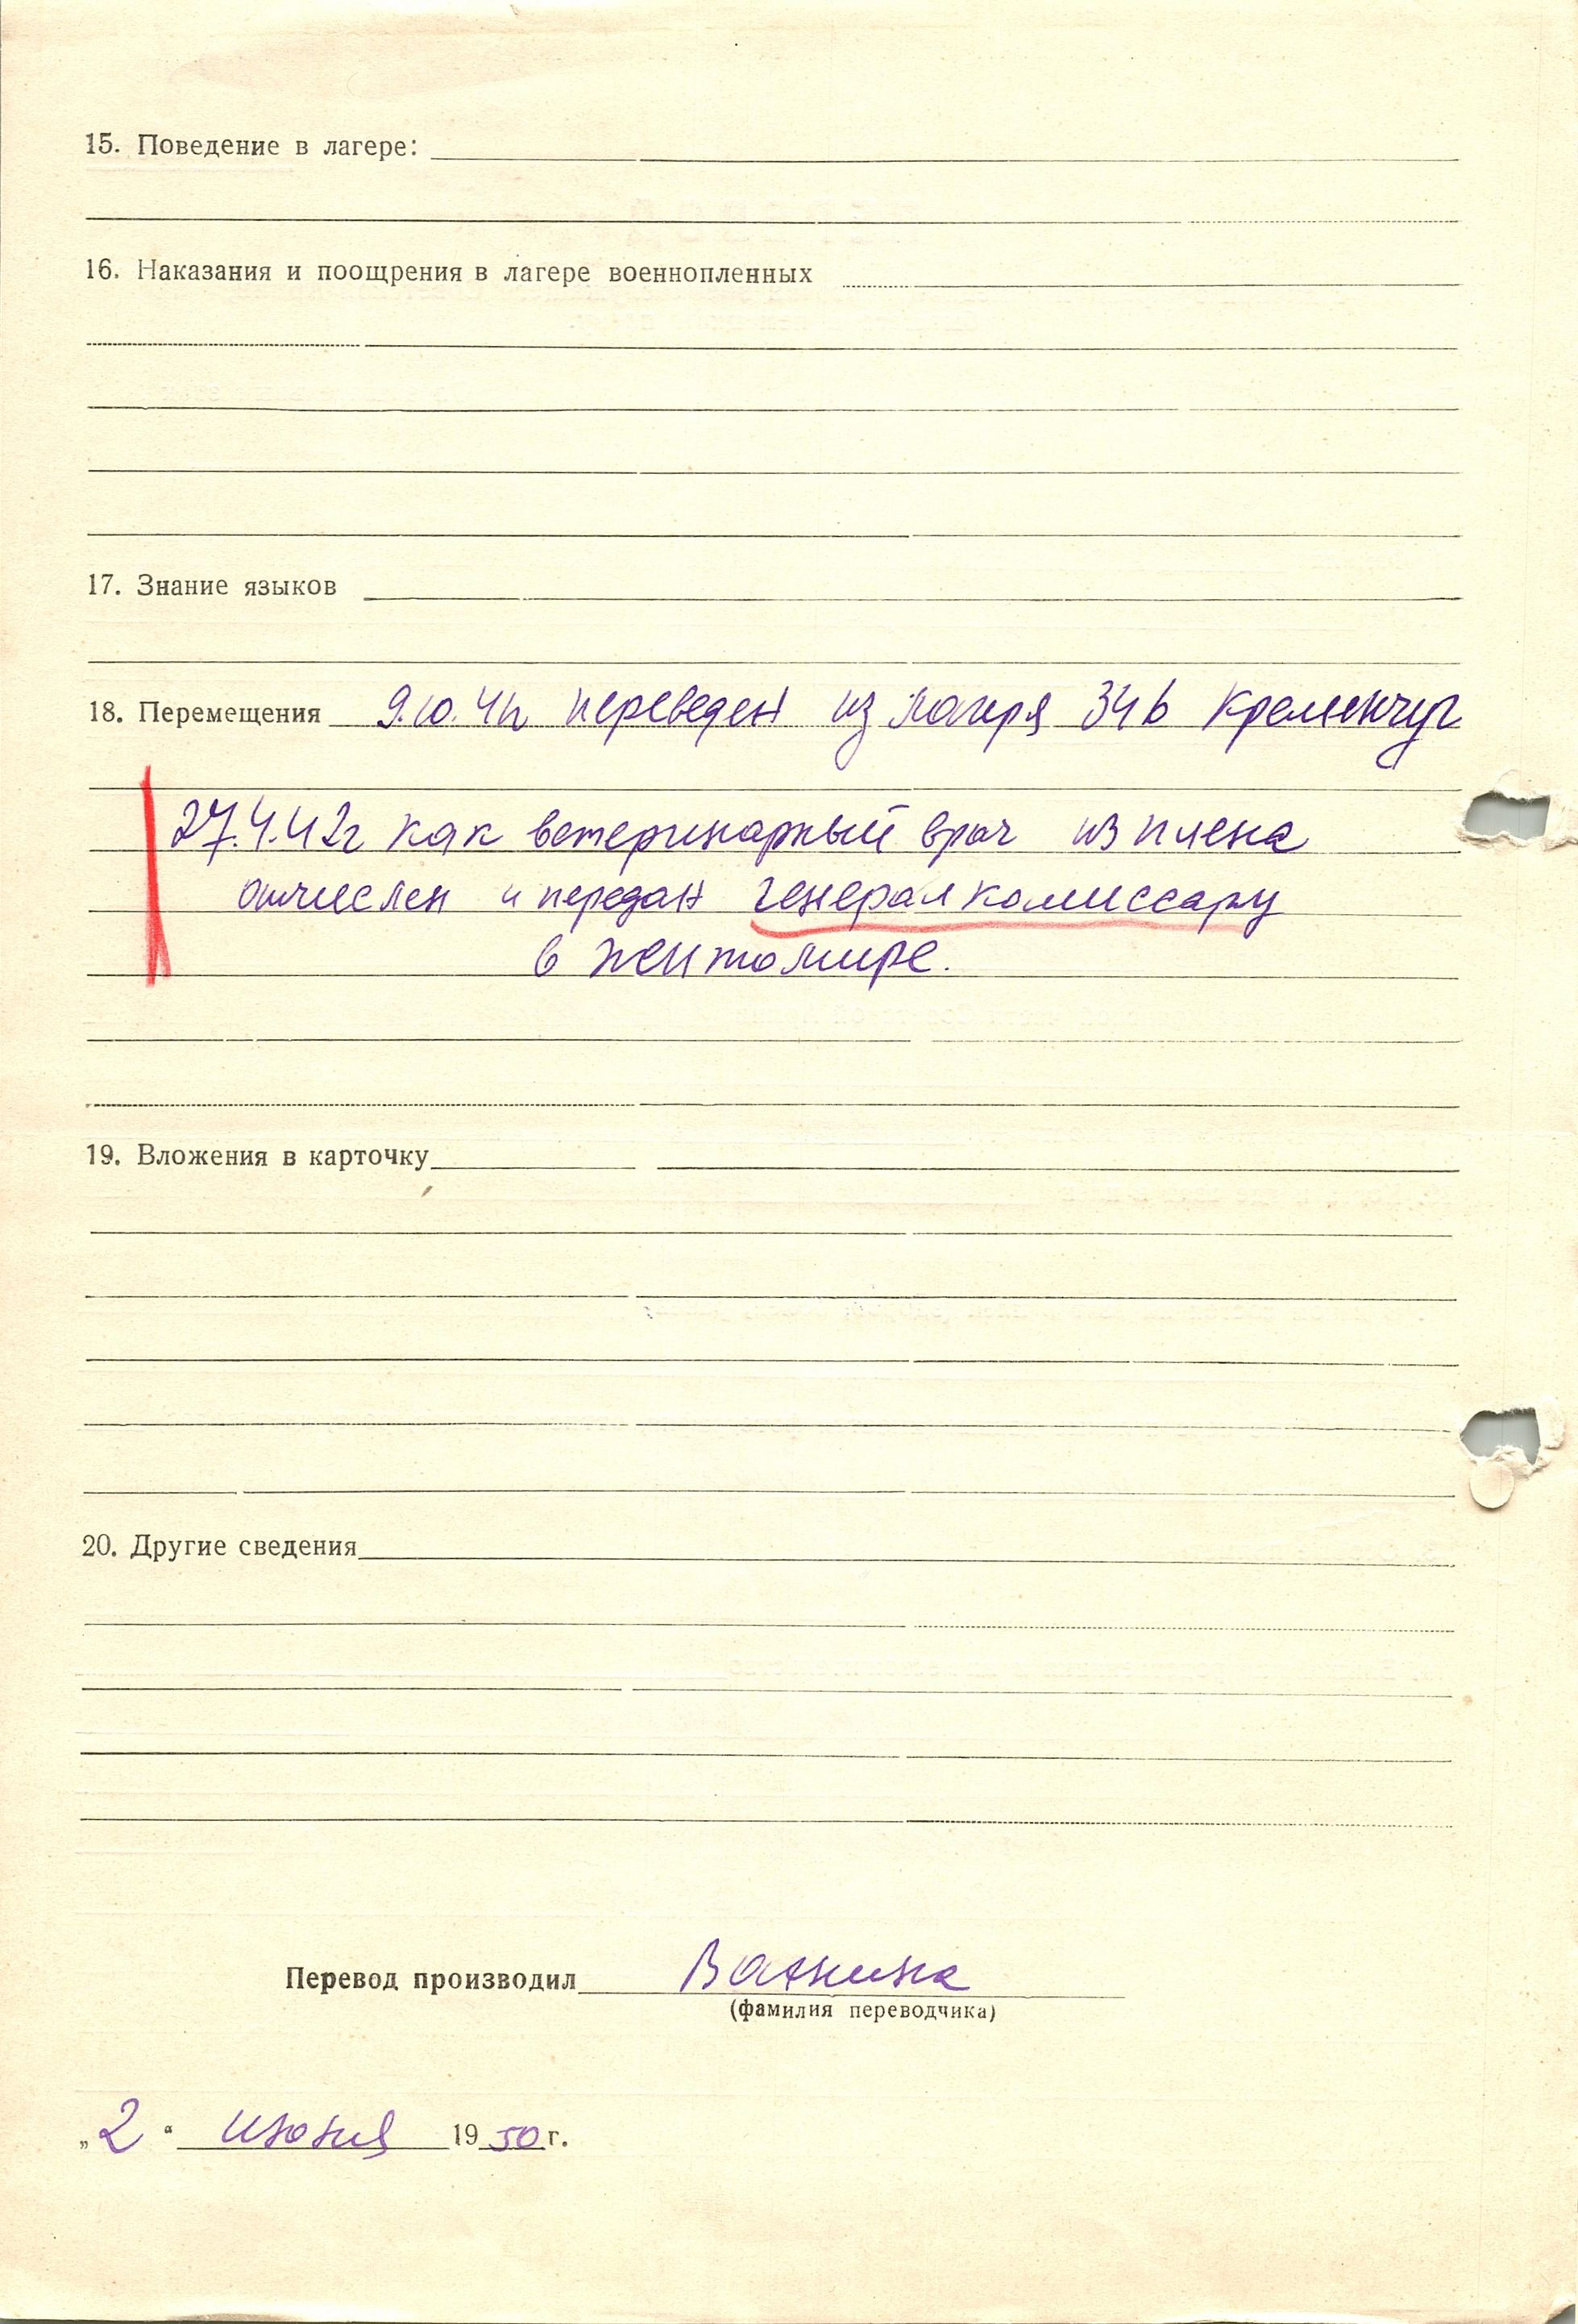 15. Поведение в лагере:
16. Наказания и поощрения в лагере военнопленных
17. Знание языков
18. Перемещения 9.10.41г переведен из лагеря 346 Кременчуг
27.4.42г как ветеринарный врач из плена
отчислен и передан генералкомиссару
в Житомире.
19. Вложения в карточку
20. Другие сведения
Перевод производил
(фамилия переводчика)
„2“ июня 1950 г.